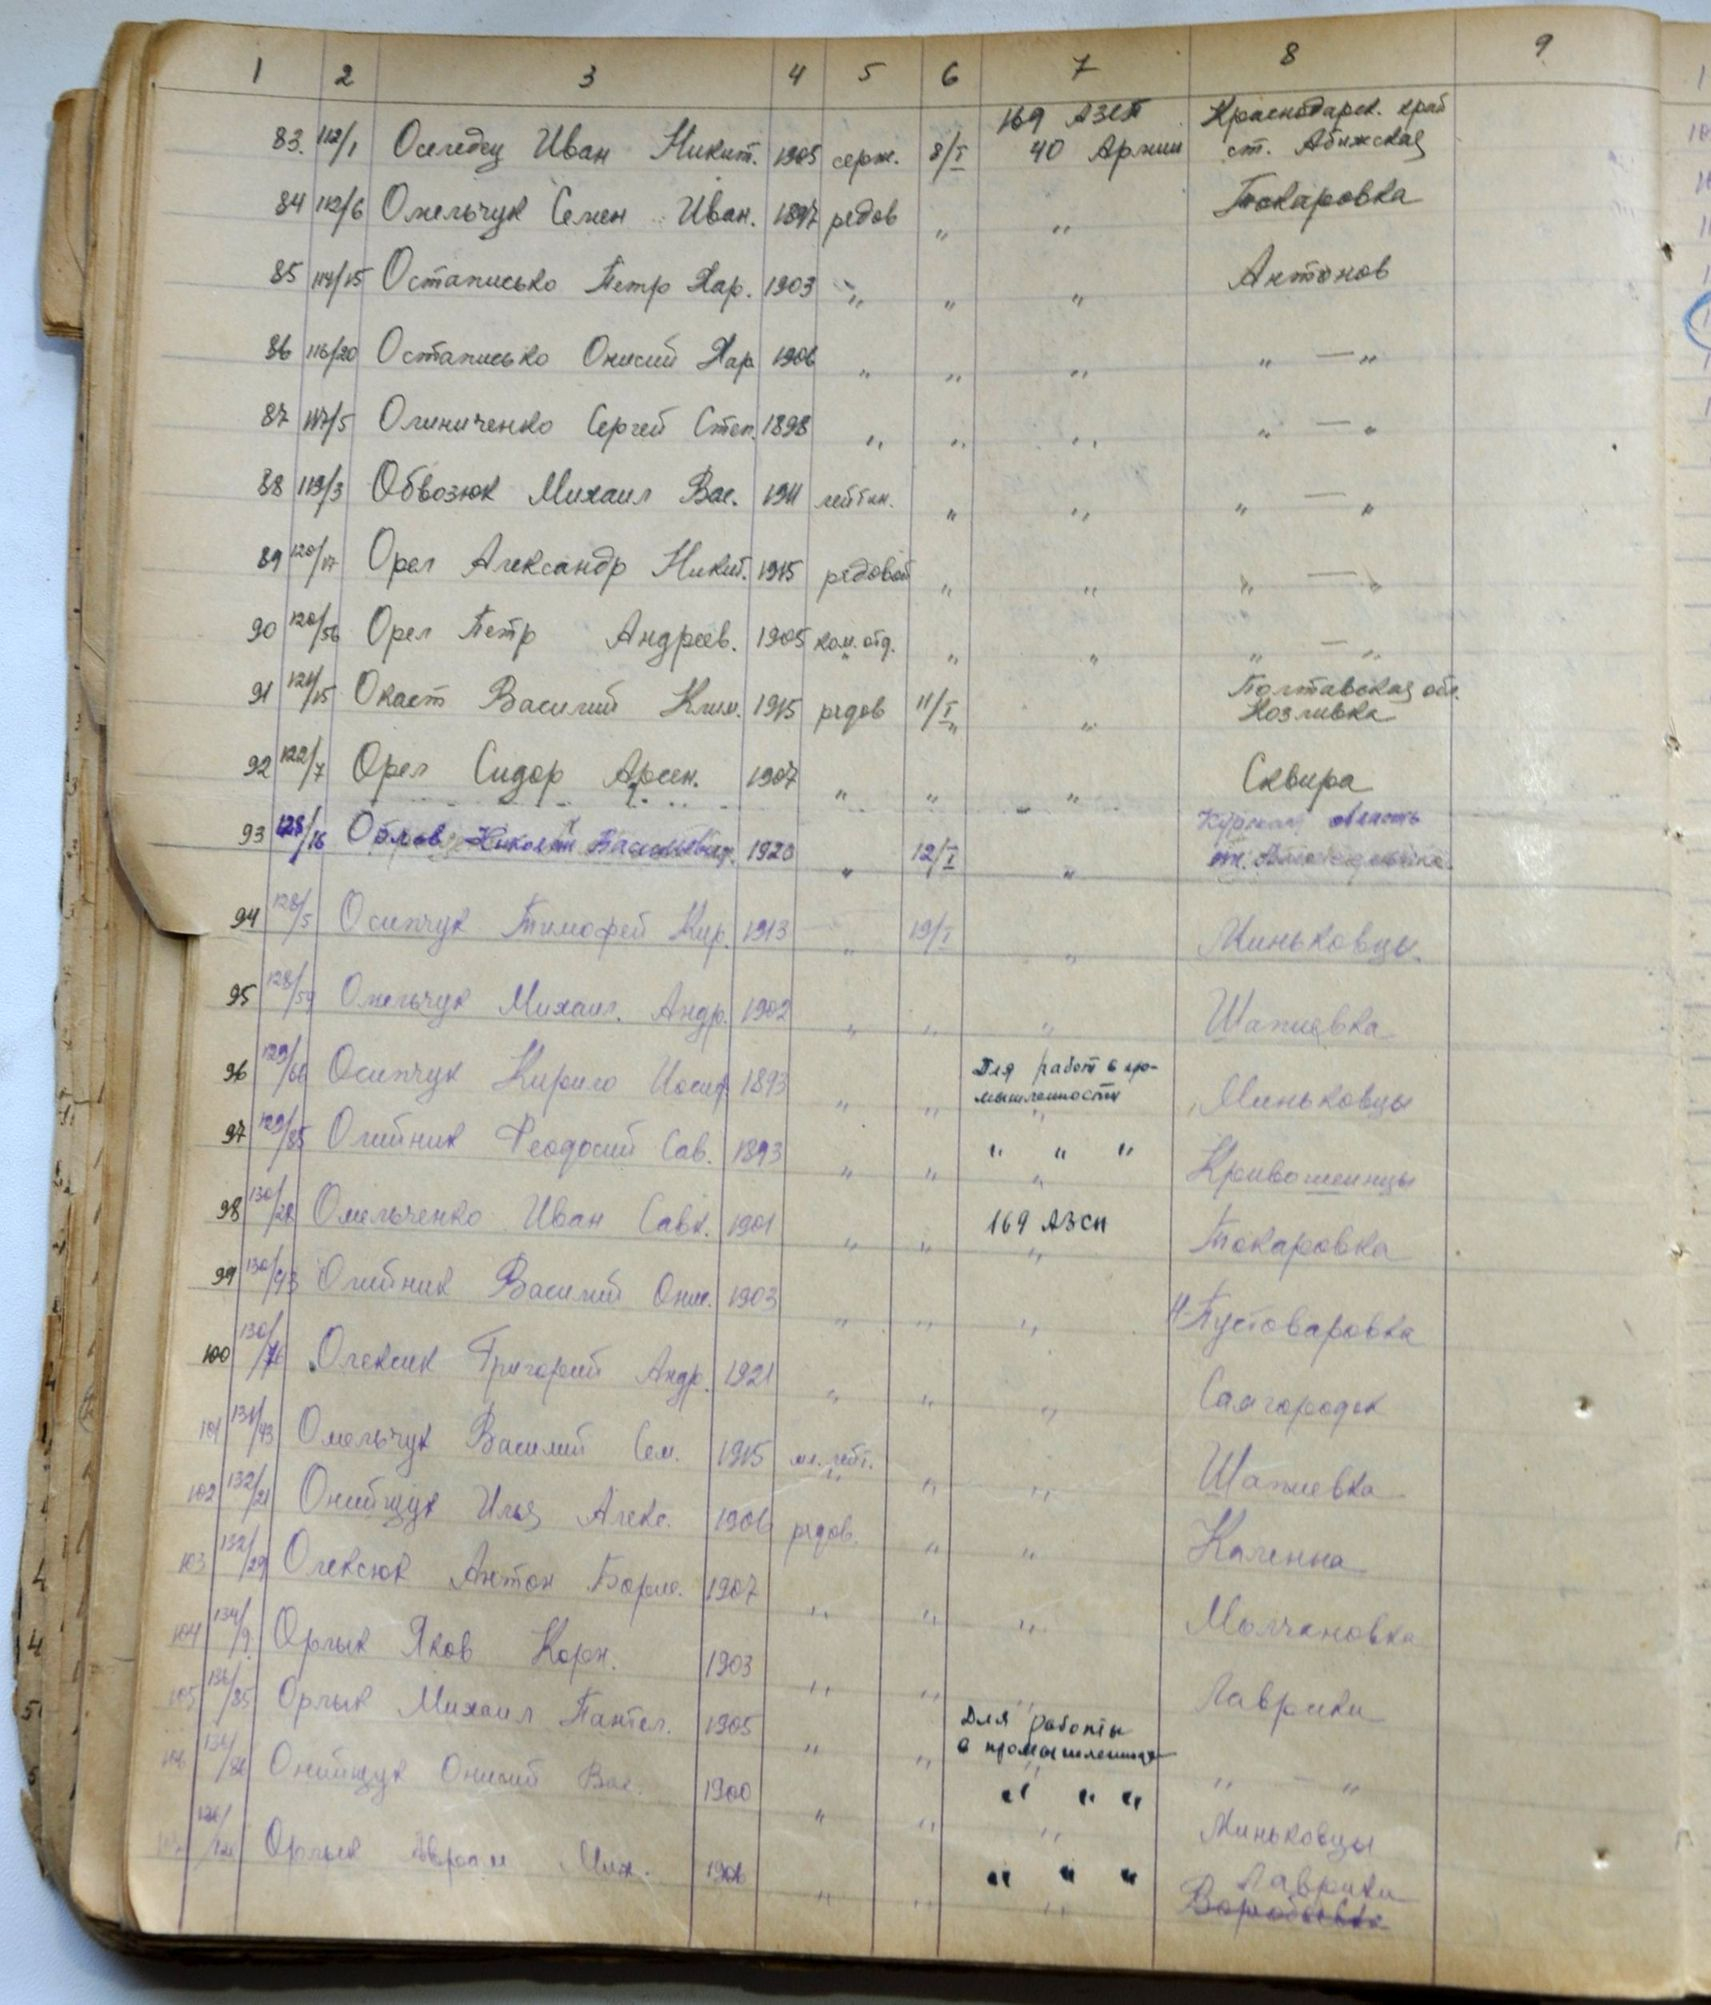 1 2 3 4 5 6 7 8 9
169 АЗСП Краснодарск. край
83. 112/1 Оселедец Иван Никит. 1905 серж. 8/I 40 Армии ст. Абижская
84 112/6 Омельчук Семен Иван. 1897 рядов " " Токаровка
85 114/15 Остаписько Петр Хар. 1903 " " " Антонов
86 116/20 Остаписько Онисий Хар 1906 " " " " — "
87 117/5 Олиниченко Сергей Степ. 1898 " " " " — "
88 119/3 Обвозюк Михаил Вас. 1911 лейтен. " " " — "
89 120/17 Орел Александр Никит. 1915 рядовой " " " — "
90 120/56 Орел Петр Андреев. 1905 ком. отд. " " " — "
Полтавская обл.
91 121/15 Окаст Василий Клим. 1915 рядов 11/I " Козливка
92 122/7 Орел Сидор Арсен. 1907 " " " Сквира
Курская область
93 128/16 Николай Васильевич. 1920 " 12/I " ст.
94 128/5 Осипчук Тимофей Кир. 1913 " 19/I " Миньковцы
95 128/59 Омельчук Михаил. Андр. 1902 " " " Шапиевка
Для работ в про-
96 129/66 Осипчук Кирило Иосиф 1893 " " мышленности " Миньковцы
" " "
97 129/85 Олийник Феодосий Сав. 1893 " " " Кривошеинцы
98 130/28 Омельченко Иван Савк. 1901 " " 169 АЗСП " Токаровка
99 130/43 Олийник Василий Онис. 1903 " " " Н-Пустоваровка
100 130/76 Олексик Григорий Андр. 1921 " " " Самгородок
101 131/43 Омельчук Василий Сем. 1915 мл. лейт. " " " Шапиевка
102 132/21 Онийщук Илья Алекс. 1906 рядов. " " Каленна
103 132/29 Олексюк Антон Борис. 1907 " " " Молчановка
104 134/9 Орлык Яков Корн. 1903 " " " Лаврики
Для работы
105 136/85 Орлык Михаил Пантел. 1905 " " в " " — "
" " "
106 136/86 Онийщук Онисий Вас. 1900 " " " Миньковцы
" " " Лаврики
Орлык Аврам Мих. 1906 " " "